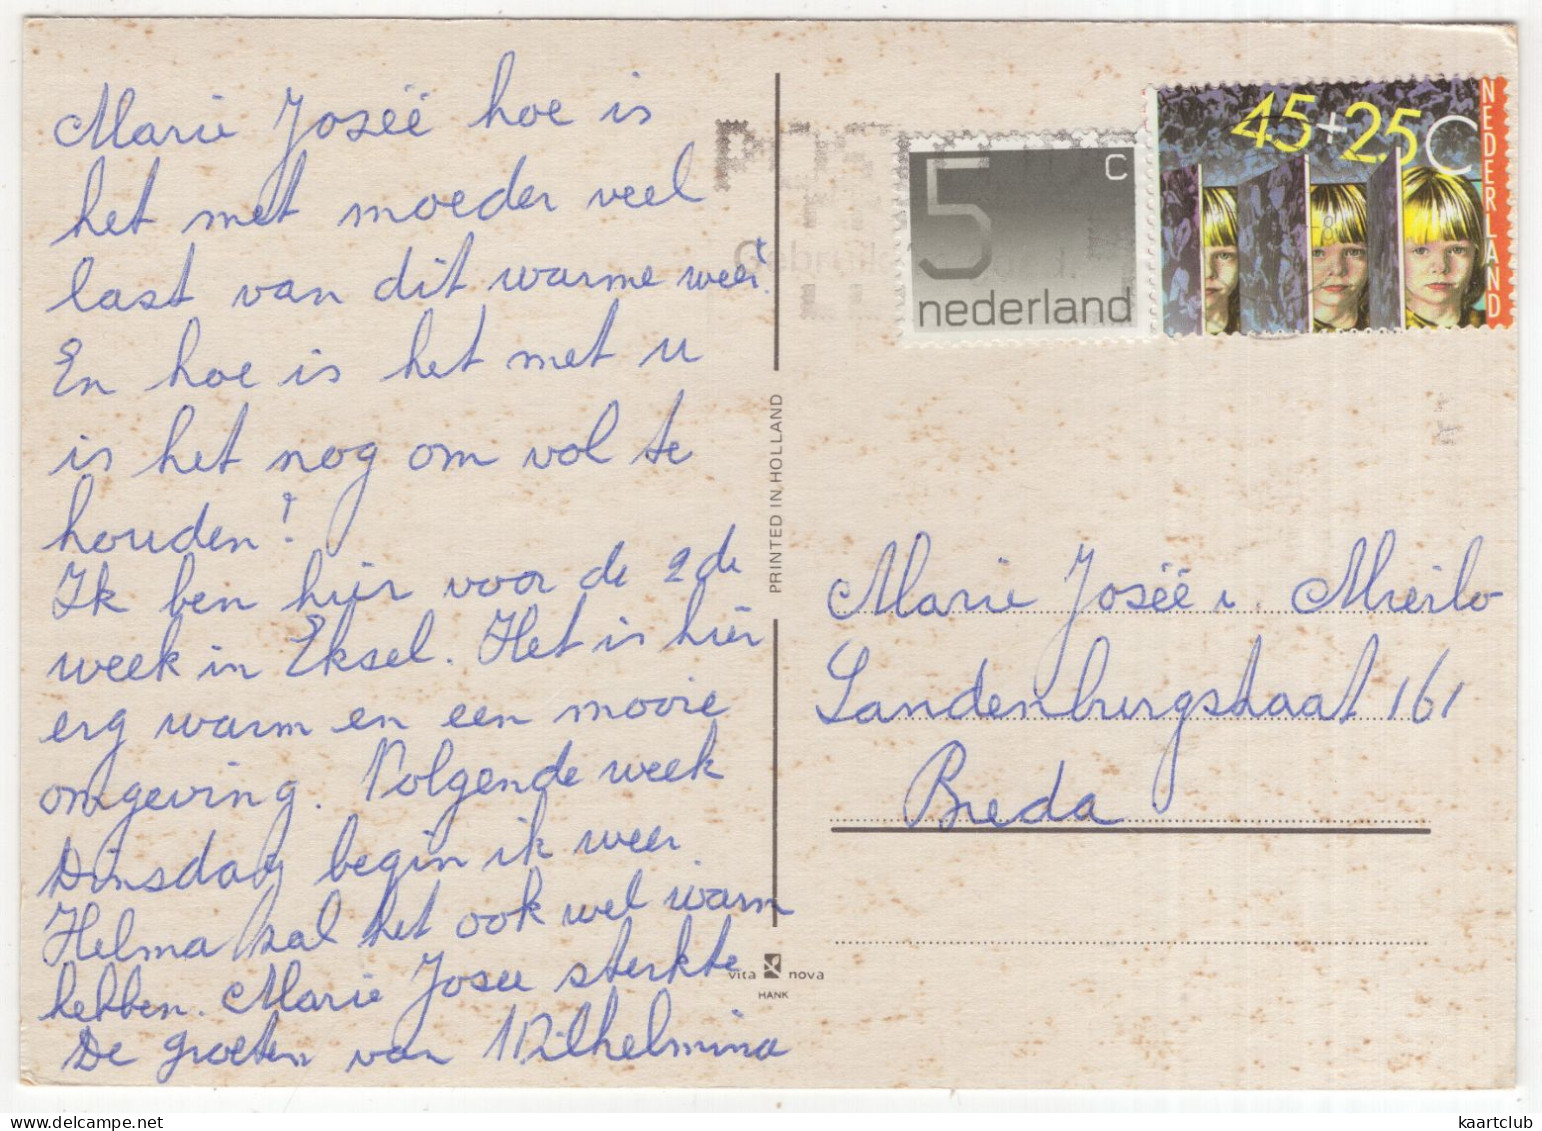 Marie Joseë hoe is
het met moeder veel
last van dit warme weer.
En hoe is het met u
is het nog om vol te
houden!
Ik ben hier voor de 2de
week in Eksel. Het is hier
erg warm en een mooie
omgeving. Volgende week
Dinsdag begin ik weer.
Helma zal het ook wel warm
hebben. Marie Josee sterkte
De groeten van Wilhelmina
PRINTED IN HOLLAND
vita nova
HANK
5 c
nederland
45+25C
NEDERLAND
Marie Joseë v. Mierlo
Landenburgstraat 161
Breda
kaartclub